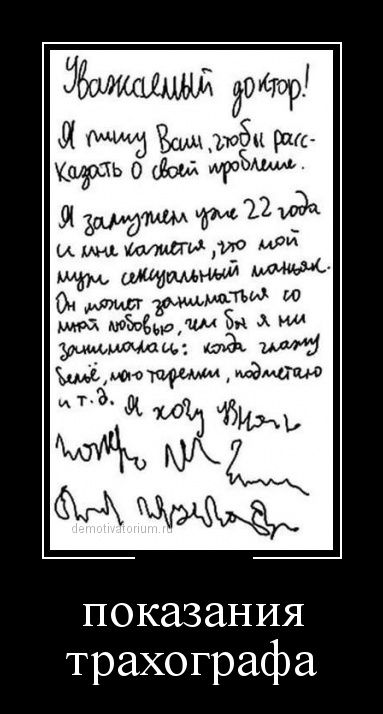 Уважаемый доктор!
Я пишу Вам, чтобы расс-
казать о своей проблеме.
Я замужем уже 22 года
и мне кажется, что мой
муж сексуальный маньяк.
Он может заниматься со
мной любовью, чем бы я ни
занималась: когда глажу
бельё, мою тарелки, подметаю
и т.д. Я хочу
demotivatorium.ru
показания
трахографа